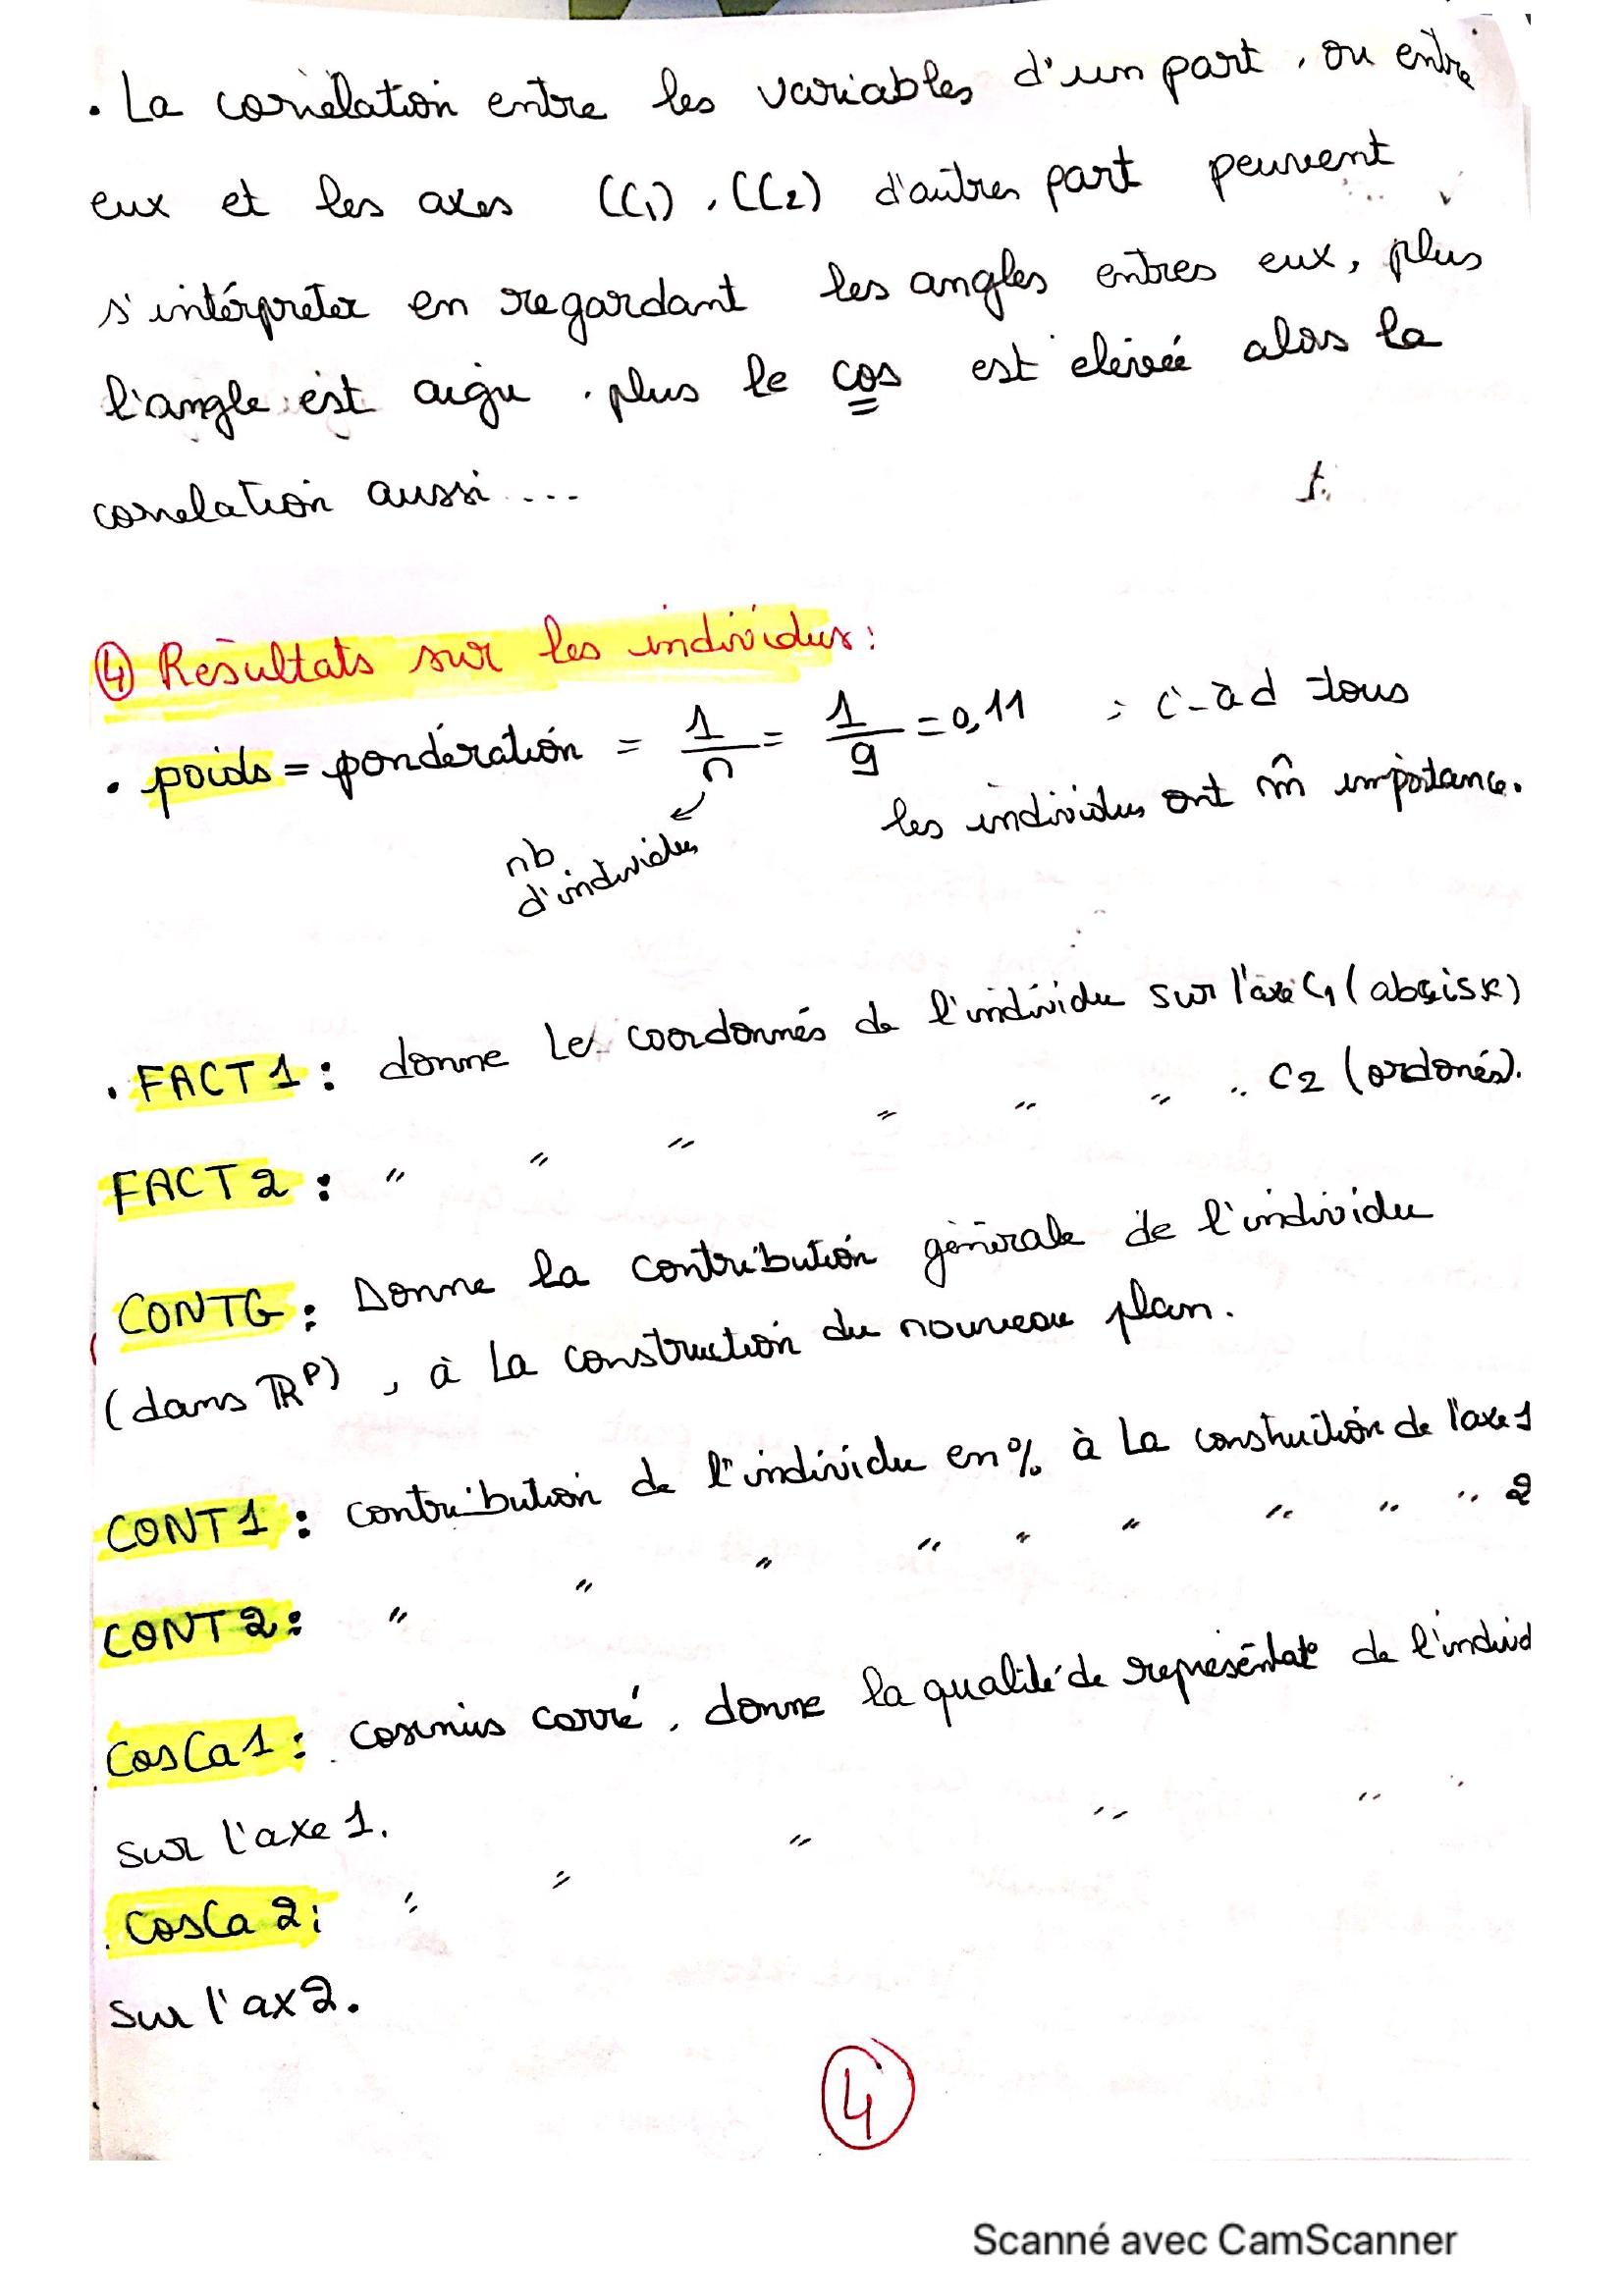 . La corrélation entre les variables d'un part, ou entre
eux et les axes (C1), (C2) d'autres part peuvent
s'intérpreter en regardant les angles entres eux, plus
l'angle est aigu, plus le cos est elevée alors la
correlation aussi ...
④ Résultats sur les individus:
. poids = pondération = 1/n = 1/9 = 0,11 : c-àd tous
les individus ont m̂ importance.
nb
d'individus
. FACT1 : donne les coordonnés de l'individu sur l'axe C1 (absisse)
FACT2 : " " " " " " " C2 (ordonés).
CONTG : Donne la contribution génèrale de l'individu
(dans ℝᴾ), à la construction du nouveau plan.
CONT1 : contribution de l'individu en % à la construction de l'axe 1
CONT2 : " " " " " " " " " 2
CosCa1 : cosinius carré, donne la qualité de représentat° de l'individ
sur l'axe 1.
CosCa 2 : " " " " "
sur l'ax 2.
4
Scanné avec CamScanner